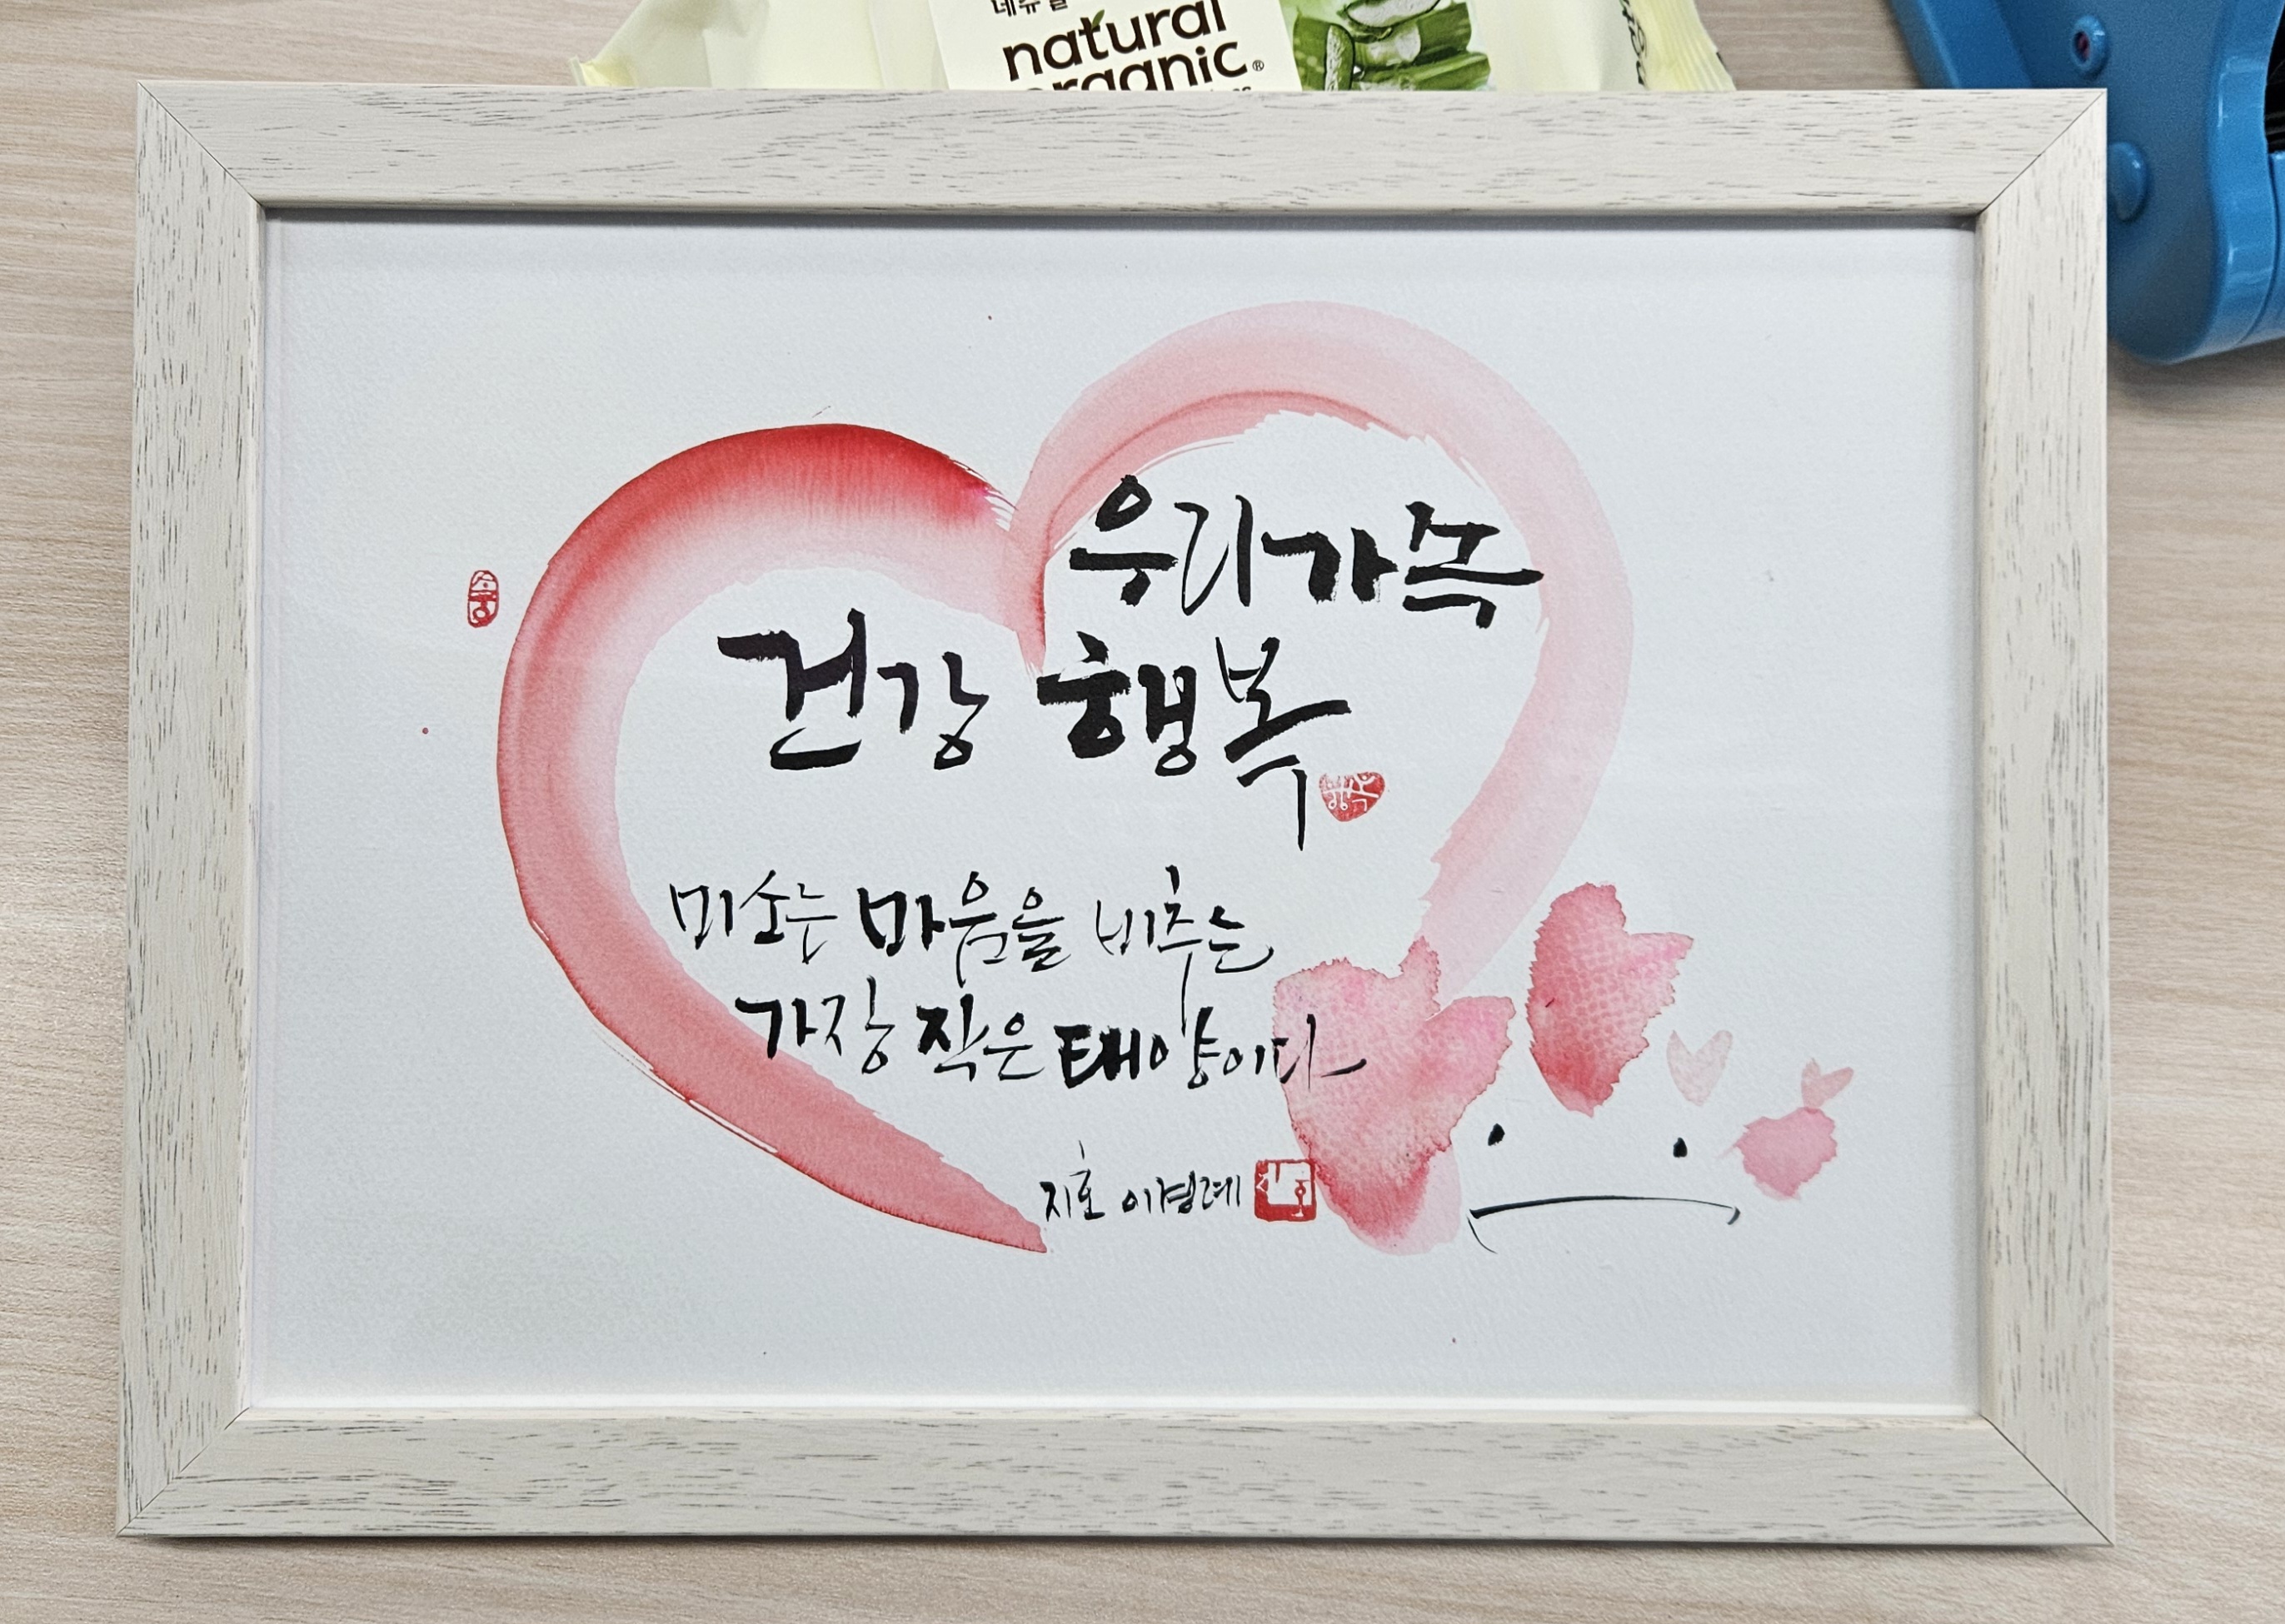 natural
organic
우리가족
건강 행복
미소는 마음을 비추는
가장 작은 태양이다
지호 이경례